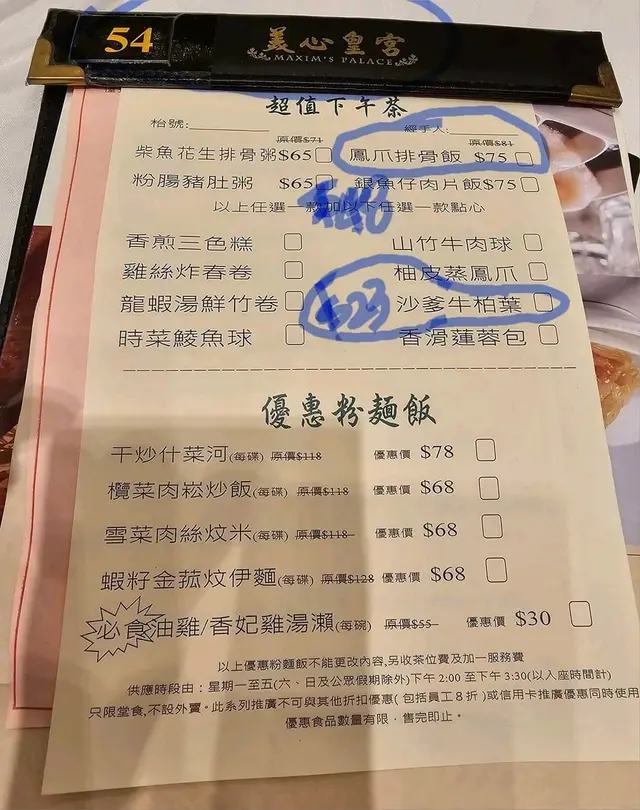 54 美心皇宮
MAXIM'S PALACE
超值下午茶
枱號:________ 經手人:________
原價$71 原價$81
柴魚花生排骨粥$65 鳳爪排骨飯 $75
粉腸豬肚粥 $65 銀魚仔肉片飯$75
以上任選一款加以下任選一款點心
香煎三色糕 山竹牛肉球
雞絲炸春卷 柚皮蒸鳳爪
龍蝦湯鮮竹卷 $23 沙爹牛柏葉
時菜鯪魚球 香滑蓮蓉包
優惠粉麵飯
干炒什菜河(每碟) 原價$118 優惠價 $78
欖菜肉崧炒飯(每碟) 原價$118 優惠價 $68
雪菜肉絲炆米(每碟) 原價$118 優惠價 $68
蝦籽金菰炆伊麵(每碟) 原價$128 優惠價 $68
必食油雞/香妃雞湯瀨(每碗) 原價$55 優惠價 $30
以上優惠粉麵飯不能更改內容,另收茶位費及加一服務費
供應時段由：星期一至五(六、日及公眾假期除外)下午 2:00 至下午 3:30(以入座時間計)
只限堂食,不設外賣。此系列推廣不可與其他折扣優惠(包括員工 8 折)或信用卡推廣優惠同時使用
優惠食品數量有限，售完即止。